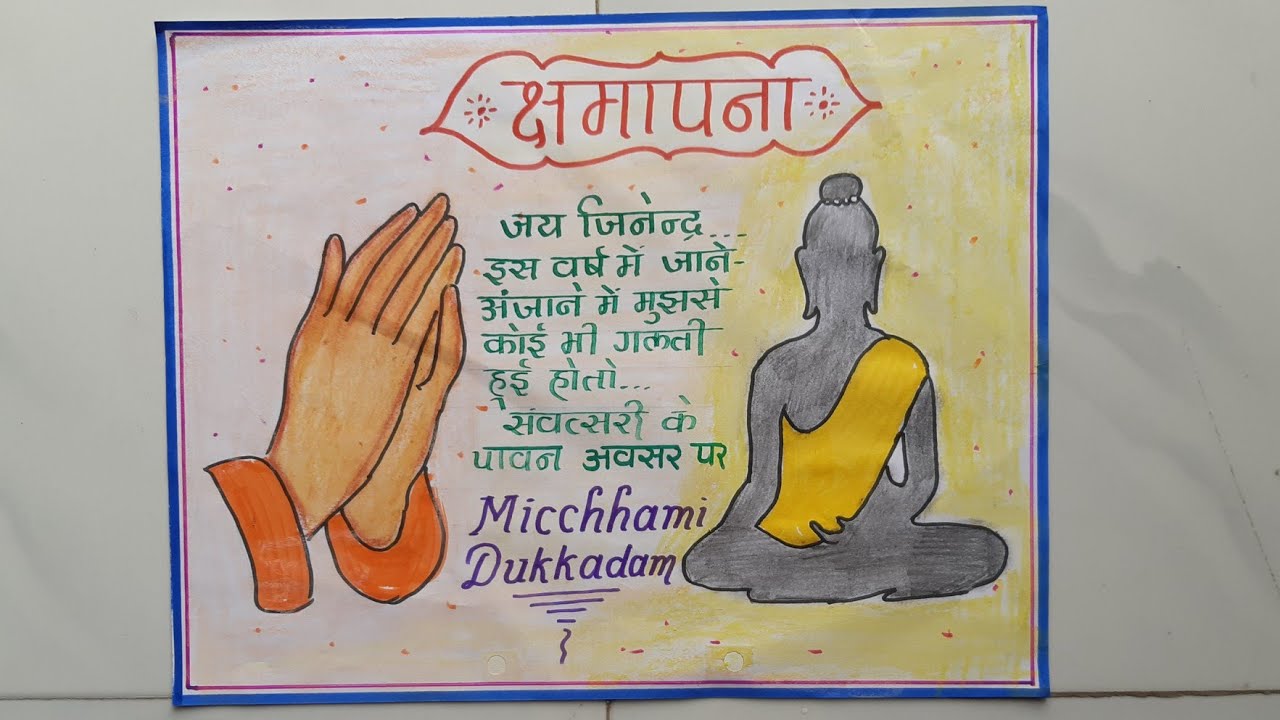 क्षमापना
जय जिनेन्द्र...
इस वर्ष में जाने-
अंजाने में मुझसे
कोई भी गलती
हुई होतो...
संवत्सरी के
पावन अवसर पर
Micchhami
Dukkadam